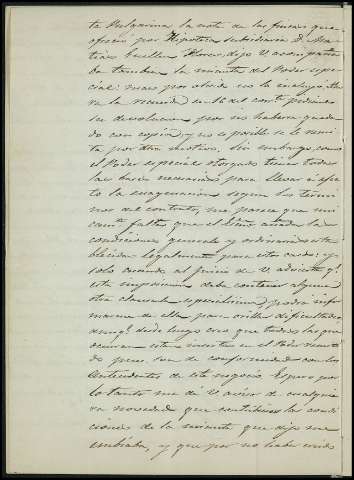 ta Vulgarina la nota de las fincas que
ofrece por Hipoteca subsidiaria D. Ma
tias Guillen Flores, dijo V. acompaña
ba tambien la minuta del Poder espe
cial: mas por olvido no la incluyó,
en la recivida en 16 del cor.te
su devolucion por no haberse queda
do con copia, y no es posible se le remi
ta por otro motivo. Sin embargo como
el Poder especial otorgado tiene todas
las bases necesarias para llevar á efec
to la enagenacion segun los térmi
nos del contrato, me parece que uni
cam.te faltan que el Sr. añada las
condiciones generales y ordinarias esta
blecidas legalmente para estos casos: y
solo cuando al juicio de V. advierta q.e
este imprima deba contener alguna
otra clausula especialisima, podrá infor
marme de ella para orillar dificultades,
aunq.e desde luego creo que todas las que
ocurran esten insertas en el Poder remiti
do pues son de conformidad con los
antecedentes de este negocio. Espero por
lo tanto me dé V. aviso de cualquie
ra novedad que contubiese las condi
ciones de la minuta que dijo me
embiaba, y que por no haber venido